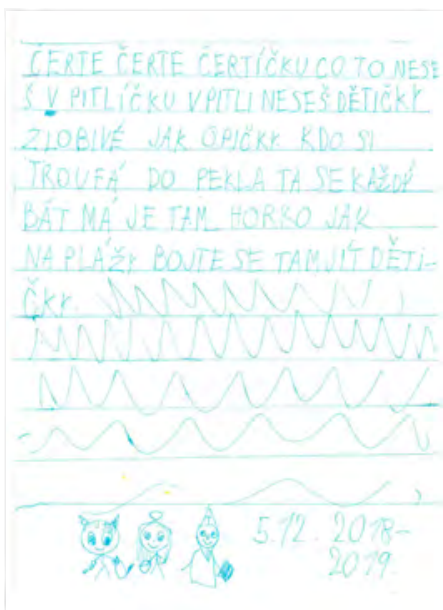 ČERTE ČERTE ČERTÍČKU CO TO NESE
Š V PITLÍČKU V PITLI NESEŠ DĚTIČKY
ZLOBIVÉ JAK OPIČKY. KDO SI
TROUFÁ DO PEKLA TA SE KAŽDÝ
BÁT MÁ JE TAM HORKO JAK
NA PLÁŽY BOJTE SE TAM JÍT DĚTI-
ČKY.
5.12. 2018-
2019